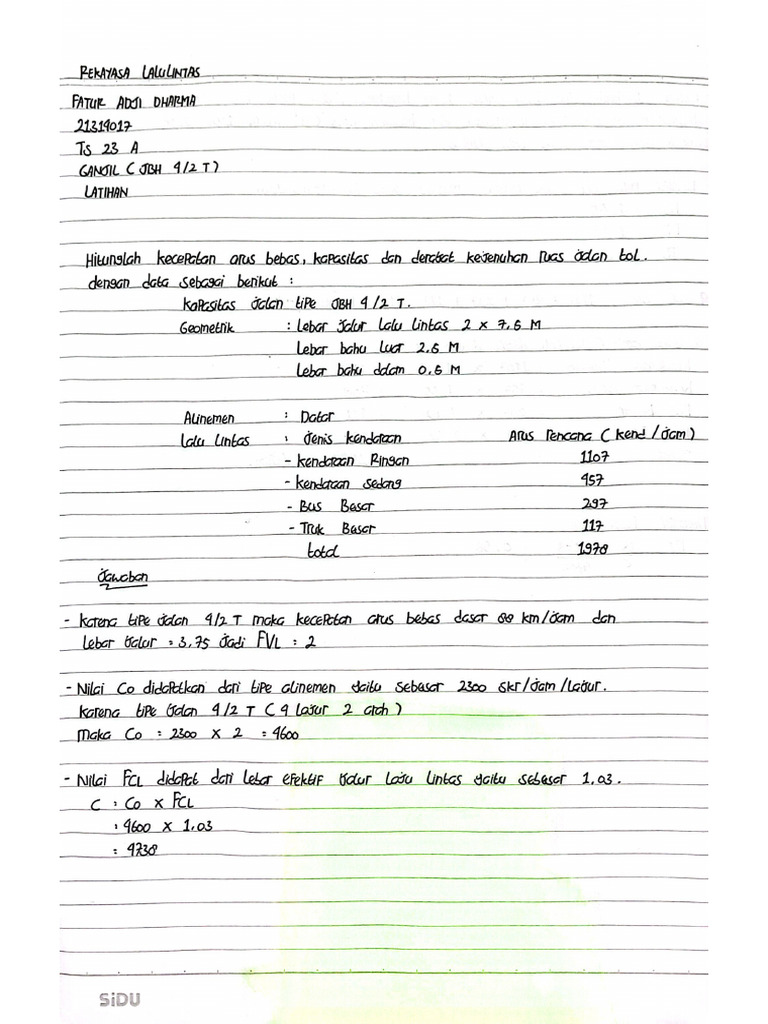 REKAYASA LALULINTAS
FATUR ADJI DHARMA
21319017
TS 23 A
GANJIL ( JBH 4/2 T )
LATIHAN
Hitunglah kecepatan arus bebas, kapasitas dan derabat kejenuhan ruas jalan tol.
dengan data sebagai berikut :
kapasitas jalan tipe JBH 4/2 T.
Geometrik : Lebar jalur lalu lintas 2 x 7.5 M
Lebar bahu luar 2.5 M
Lebar bahu dalam 0.5 M
Alinemen : Datar
lalu lintas : jenis kendaraan Arus rencana ( kend / jam )
- kendaraan Ringan 1107
- kendaraan sedang 457
- Bus Besar 297
- Truk Besar 117
total 1978
Jawaban
- karena tipe jalan 4/2 T maka kecepatan arus bebas dasar 88 km/jam dan
lebar jalur = 3,75 jadi FVL = 2
- Nilai Co didapatkan dari tipe alinemen yaitu sebesar 2300 skr/jam/lajur.
karena tipe jalan 4/2 T ( 4 lajur 2 arah )
maka Co = 2300 x 2 = 4600
- Nilai FCL didapat dari lebar efektif jalur laju lintas yaitu sebesar 1,03.
C = Co x FCL
= 4600 x 1.03
= 4738
SiDU